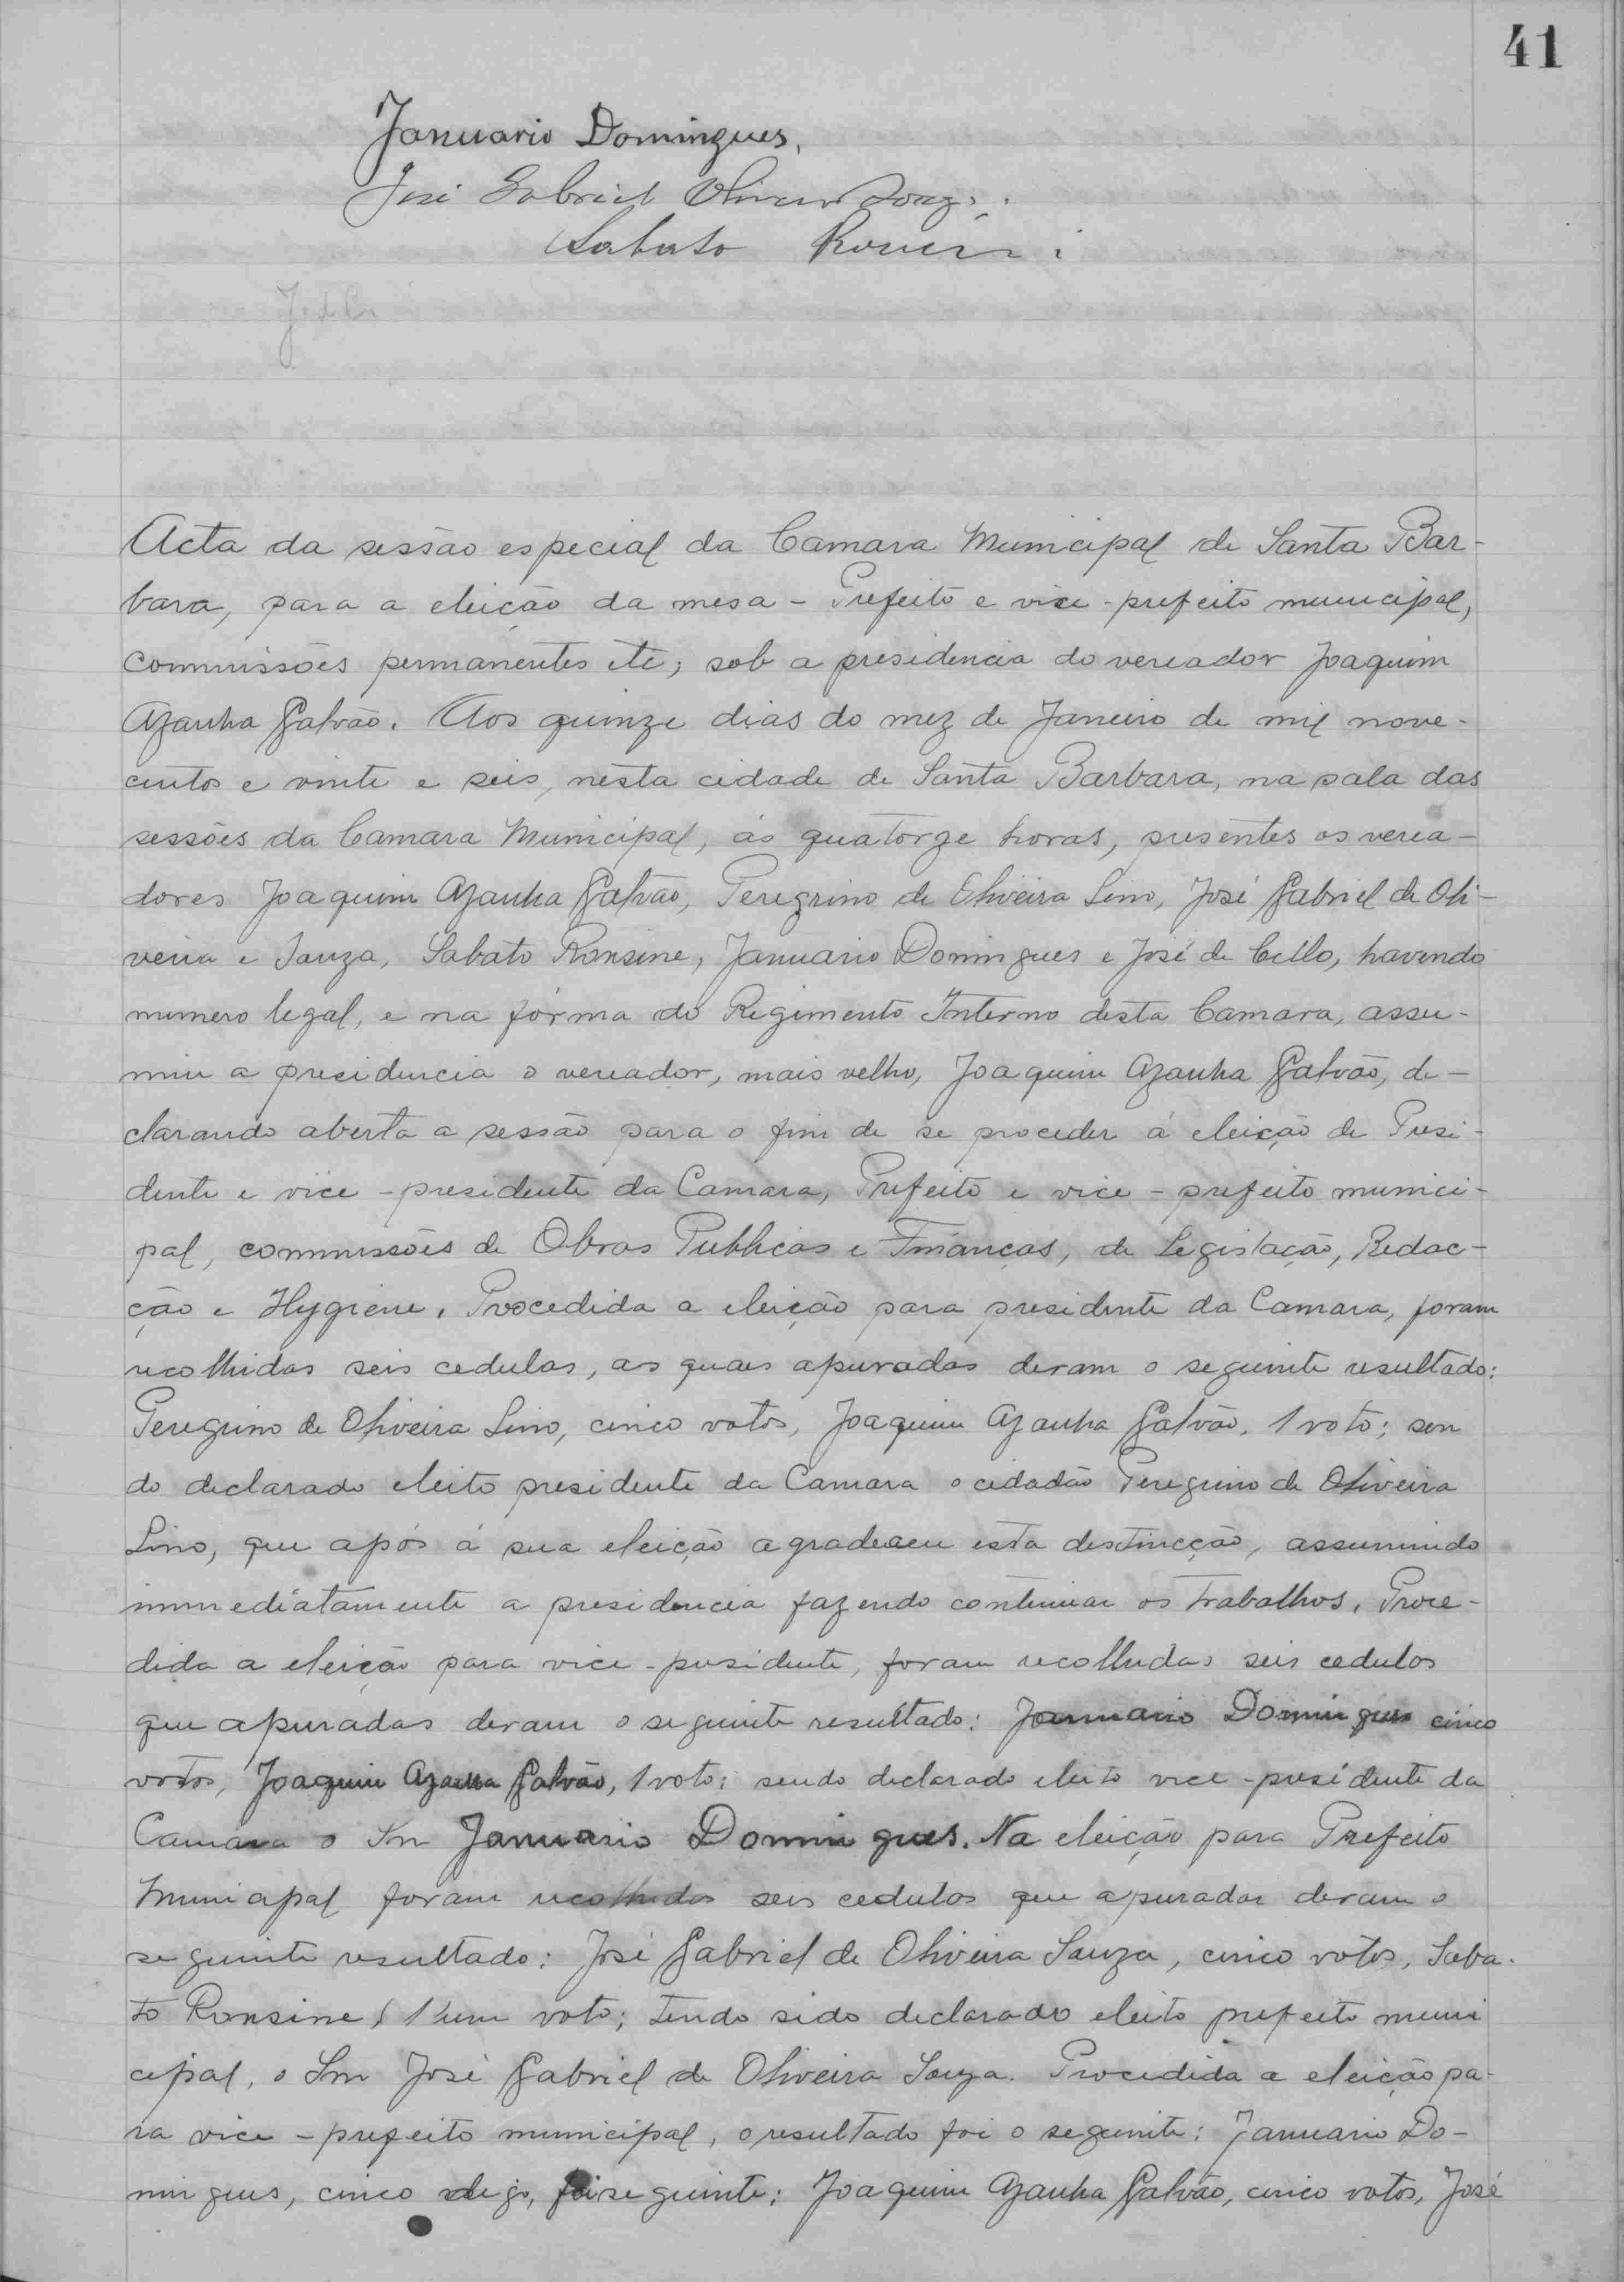 41
Januario Domingues.
José Gabriel Oliveira Souza.
Sabato Ronsini
Acta da sessão especial da Camara Municipal de Santa Bar-
bara, para a eleição da mesa - Prefeito e vice-prefeito municipal,
commissões permanentes etc; sob a presidencia do vereador Joaquim
Azanha Galvão. Aos quinze dias do mez de Janeiro de mil nove-
centos e vinte e seis, nesta cidade de Santa Barbara, na sala das
sessões da Camara Municipal, ás quatorze horas, presentes os verea-
dores Joaquim Azanha Galvão, Peregrino de Oliveira Lino, José Gabriel de Oli-
veira e Souza, Sabato Ronsine, Januario Domingues e José de Cillo, havendo
numero legal, e na fórma do Regimento Interno desta Camara, assu-
miu a presidencia o vereador, mais velho, Joaquim Azanha Galvão, de-
clarando aberta a sessão para o fim de se proceder á eleição de Presi-
dente e vice-presidente da Camara, Prefeito e vice-prefeito munici-
pal, commissões de Obras Publicas e Finanças, de Legislação, Redac-
ção e Hygiene. Procedida a eleição para presidente da Camara, foram
recolhidas seis cedulas, as quaes apuradas deram o seguinte resultado:
Peregrino de Oliveira Lino, cinco votos, Joaquim Azanha Galvão, 1 voto; sen
do declarado eleito presidente da Camara o cidadão Peregrino de Oliveira
Lino, que após á sua eleição agradeceu esta destincção, assumindo
immediatamente a presidencia fazendo continuar os trabalhos. Proce-
dida a eleição para vice-presidente, foram recolhidas seis cedulas
que apuradas deram o seguinte resultado: Januario Domingues cinco
votos, Joaquim Azanha Galvão, 1 voto; sendo declarado eleito vice-presidente da
Camara o Snr Januario Domingues. Na eleição para Prefeito
Municipal foram recolhidas seis cedulas que apuradas deram o
seguinte resultado: José Gabriel de Oliveira Souza, cinco votos, Saba-
to Ronsine, 1 um voto; tendo sido declarado eleito prefeito muni
cipal, o Snr José Gabriel de Oliveira Souza. Procedida a eleição pa-
ra vice-prefeito municipal, o resultado foi o seguinte: Januario Do-
mingues, cinco digo, foi seguinte: Joaquim Azanha Galvão, cinco votos, José